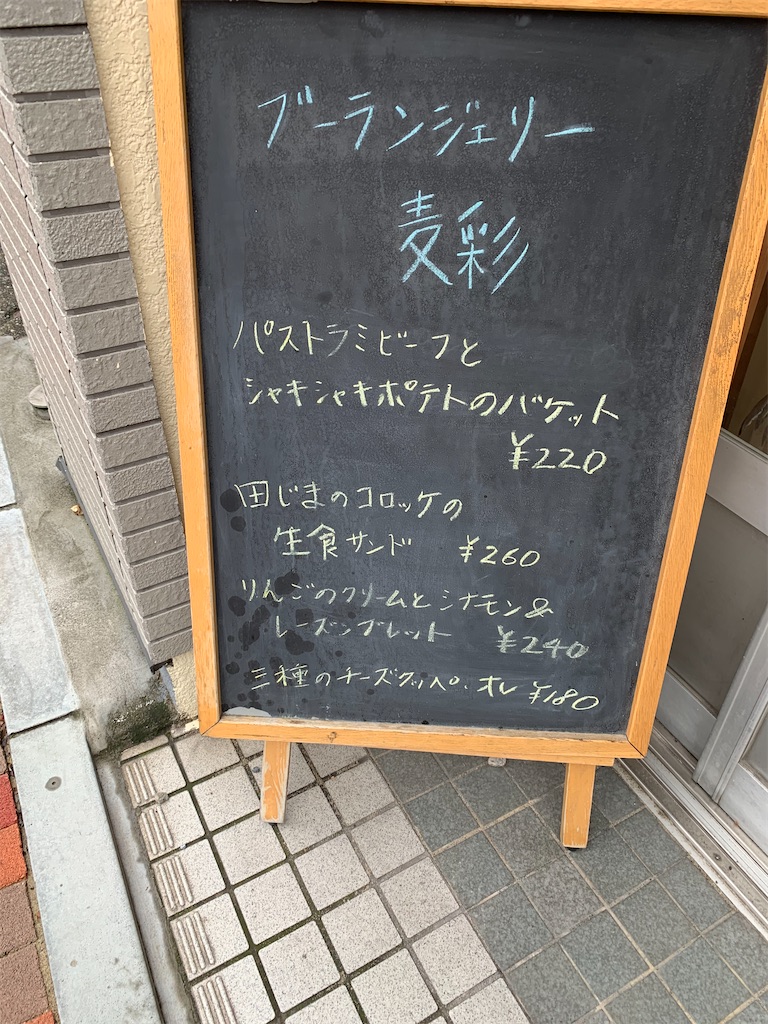 ブーランジェリー
麦彩
パストラミビーフと
シャキシャキポテトのバケット
¥220
田じまのコロッケの
生食サンド ¥260
りんごのクリームとシナモン&
レーズンブレット ¥240
三種のチーズクッペ・オレ ¥180